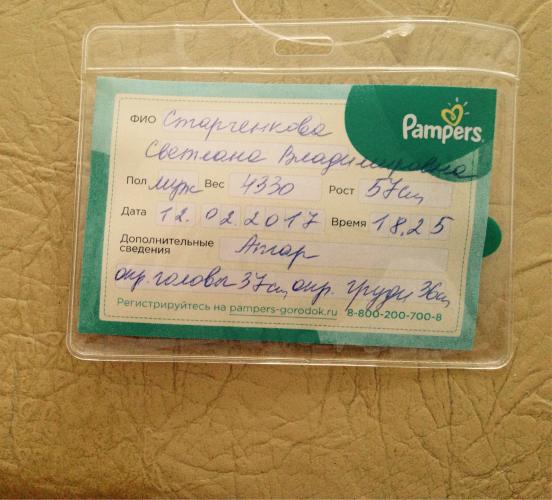 Pampers
ФИО Старченкова
Светлана Владимировна
Пол муж Вес 4330 Рост 57см
Дата 12.02.2017 Время 18.25
Дополнительные сведения Апгар
окр. головы 37см, окр. груди 36см
Регистрируйтесь на pampers-gorodok.ru 8-800-200-700-8